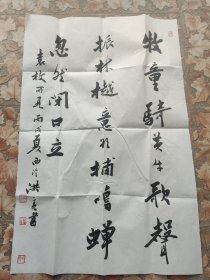 牧童騎黄牛歌聲
振林樾意欲捕鳴蟬
忽然閉口立
袁枚所見丙戌夏西泠洪亮書